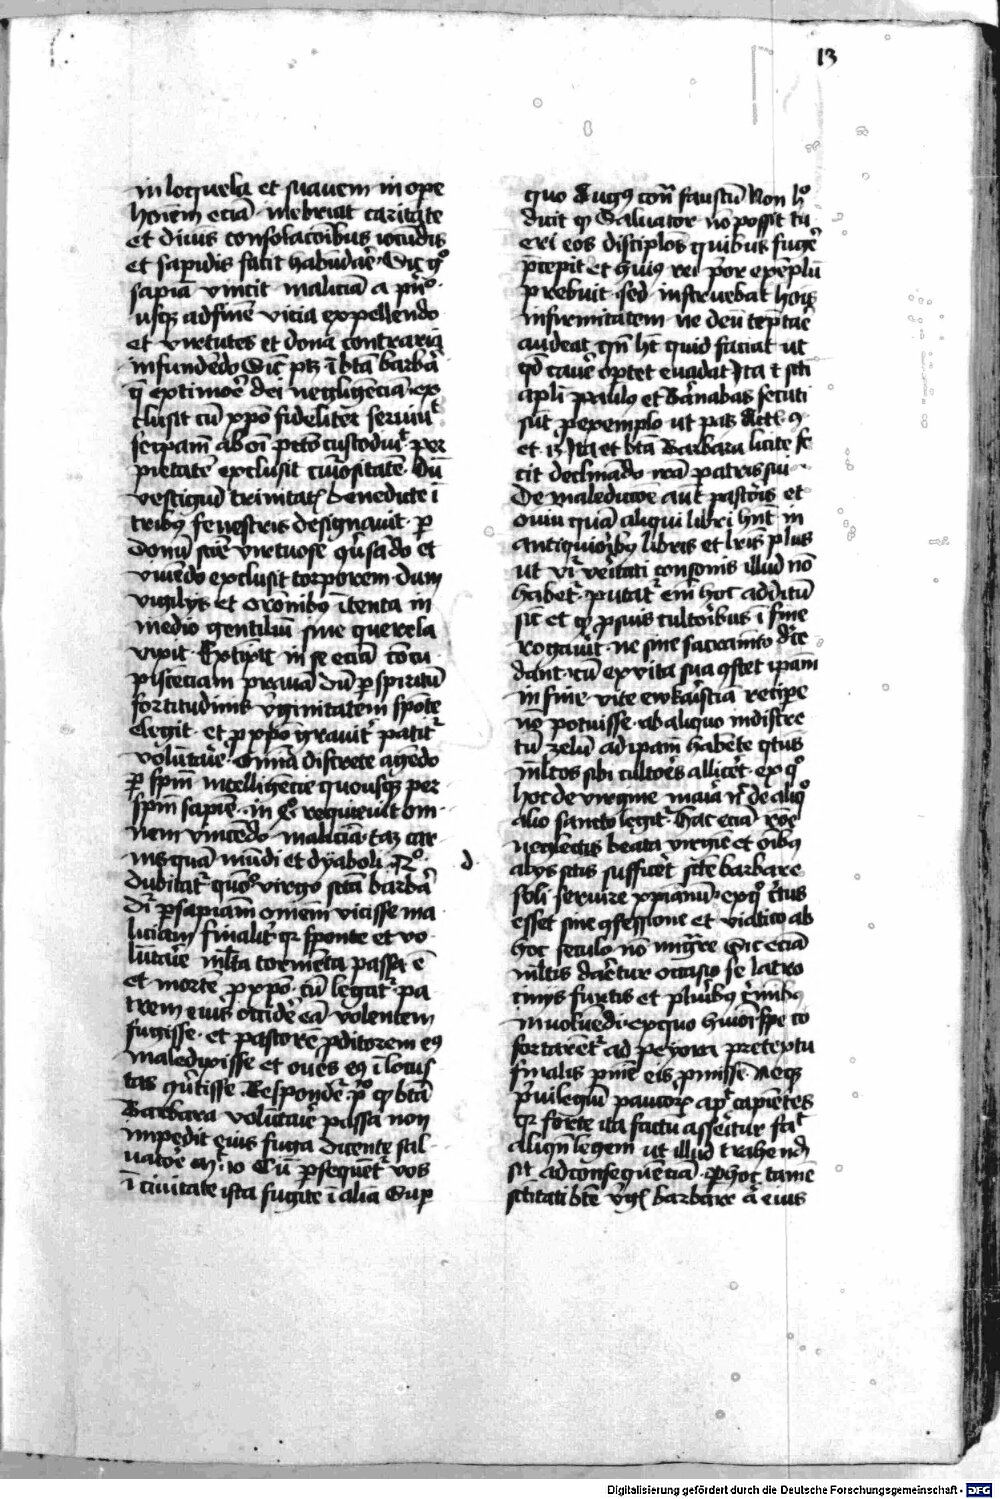 13
in loquela et suauem in ope
hoīem eciā inebriat caritate
et diuīs consolacōibus iocūdis
et sapidis facit habūdar̄ Sic gͦ
sapīa vincit maliciā a pͥnͦ
usqꝫ ad finē vicia expellendo
et virtutes et dona contraria
infundēdo Sic pꝫ ī btā barbāͣ
clusit cū xpō fidelitēr seruiuͭ
seipam̄ ab oī pctō custodiuͭ per
pietatē exclusit ciuiositatē Dū
vestigiū trinitatꝭ benedicte ī
tribꝰ fenestris designauit p̲
donū scīe virtuose
viuēdo exclusit torporem dum
vigilijs et orōnibꝰ ītenta in
medio gentiliū sine querela
vixit Extīxit in se eciā cōcu
pīscēciam prauā dū p̲ spiritū
fortitudinis vͥginitatem spōte
elegit et p xp̄o grauitͬ patitͬ
volūtarīe Omīa discrete agēdo
p̲ spm̄ intelligēcie quousqꝫ per
spm̄ sapīe in qͦ requieuit om
nem vincēdo maliciā tā car
nis quā mūdi et dyaboli
d
dubitatͬ quōͦ virgo scā barbāͣ
dͥ p̲ sapīam oīnem vicisse ma
liciam finalitͬ qͥ sponte et vo
lūtarīe ml̄ta tormēta passa ē
et mortē p xp̄o cū legatͬ pa
trem eius occidēͬ eā volentem
fugisse et pastorē p̲ditorem eꝰ
maledixisse et oues eꝰ ī locus
tas qͥuͭtisse Respondēͬ pͦ qͥ btā
Barbara volūtarīe passa non
impedit eius fuga dicente sal
uatorͤ mͭ 10 Cū p̲sequētͬ vos
ī ciuitate ista fugite ī alia Sup̲
quo Augꝰ contͣ faustū Non hͦ
dicit qͥ Saluator nō possit tu
eri eos disciplōs quibus fugēͬ
p̄cepit et huiꝰ rei pͥor exēplū
prebuit sed instruebat hoīs
infirmitatem ne deū tēptaͬe
audeat qn̄ hꝫ quid faciat ut
qd̄ cauēͬ oportet euadat Ita ī scī
apl̄i paulo et Barnabas secuti
sūt p̲ exemplo ut patꝫ Actꝭ 9
et 13 Ita et btā Barbara licite fe
cit declinādo irā patris sui
De maledictōe aut pastoris et
ouiū quā aliqui libri hn̄t in
antiquioribꝰ libris et lrīs plus
ut vrͥ veritati consonis illud nō
habetͬ putatͬ enī hoc additū
sic et qͥ p̲ suis cultoribus ī fine
rogauit ne sine sacramēto
dant cū ex vita sua qͥstet ipām
in fine vite ewkaristiā recipe
nō potuisse ab aliquo indiscre
tū zelū ad ipam habēte qͣtus
ml̄tos sibi cultores allicēͬt ex qͦ
hoc de virgine maͥa nͨ de aliqͦ
alio sancto legitͬ Hac eciā rōe
neglectis beata virgīe et oībꝰ
alijs scīs sufficēͬt scē barbare
soli seruire xpīanū ex qͦ cͭtus
esset sine qͥfessione et viatico ab
hoc seculo nō mig̲re Sic eciā
ml̄tis darētur occasio se latro
cinijs furtis et pluͥbꝰ cͥminibꝰ
inuoluēdi ex quo huiōi spe cō
fortarētͬ ad peyora precepta
finalis pnīe eis p̲misse Neqꝫ
pͥuilegiū paucorꝫ apᵈ capiētes
qͥ forte ita factū asserītur facͭ
aliquā legem ut illud trahendū
sit ad consequēciā Per hoc tamē
scītati btē vͥgīs barbare aͬ eius
Digitalisierung gefördert durch die Deutsche Forschungsgemeinschaft - DFG